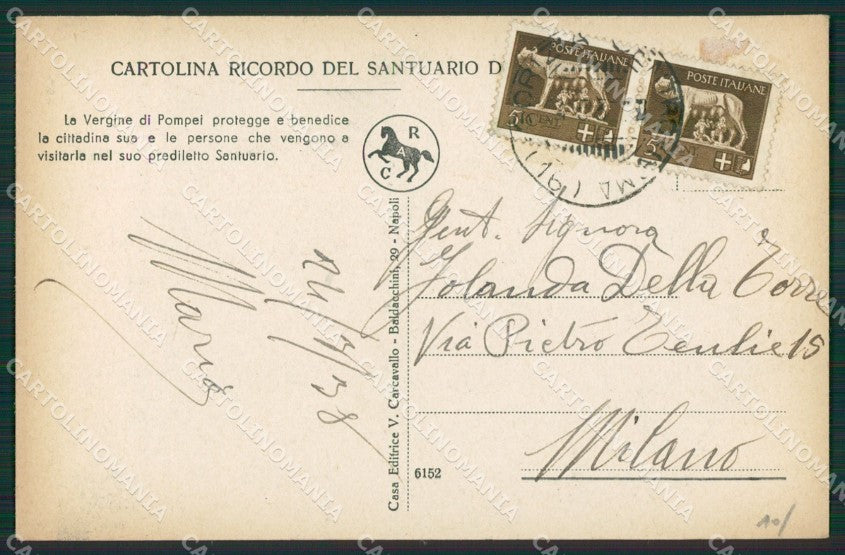 CARTOLINA RICORDO DEL SANTUARIO D
La Vergine di Pompei protegge e benedice
la cittadina sua e le persone che vengono a
visitarla nel suo prediletto Santuario.
R
A
C
POSTE ITALIANE
5 CENT
POSTE ITALIANE
5 CENT
ROMA (19)
Gent. Signora
Jolanda Della Torre
Via Pietro Teulie 15
Milano
Maria
Casa Editrice V. Carcavallo - Baldacchini, 29 - Napoli
6152
10/
CARTOLINOMANIA